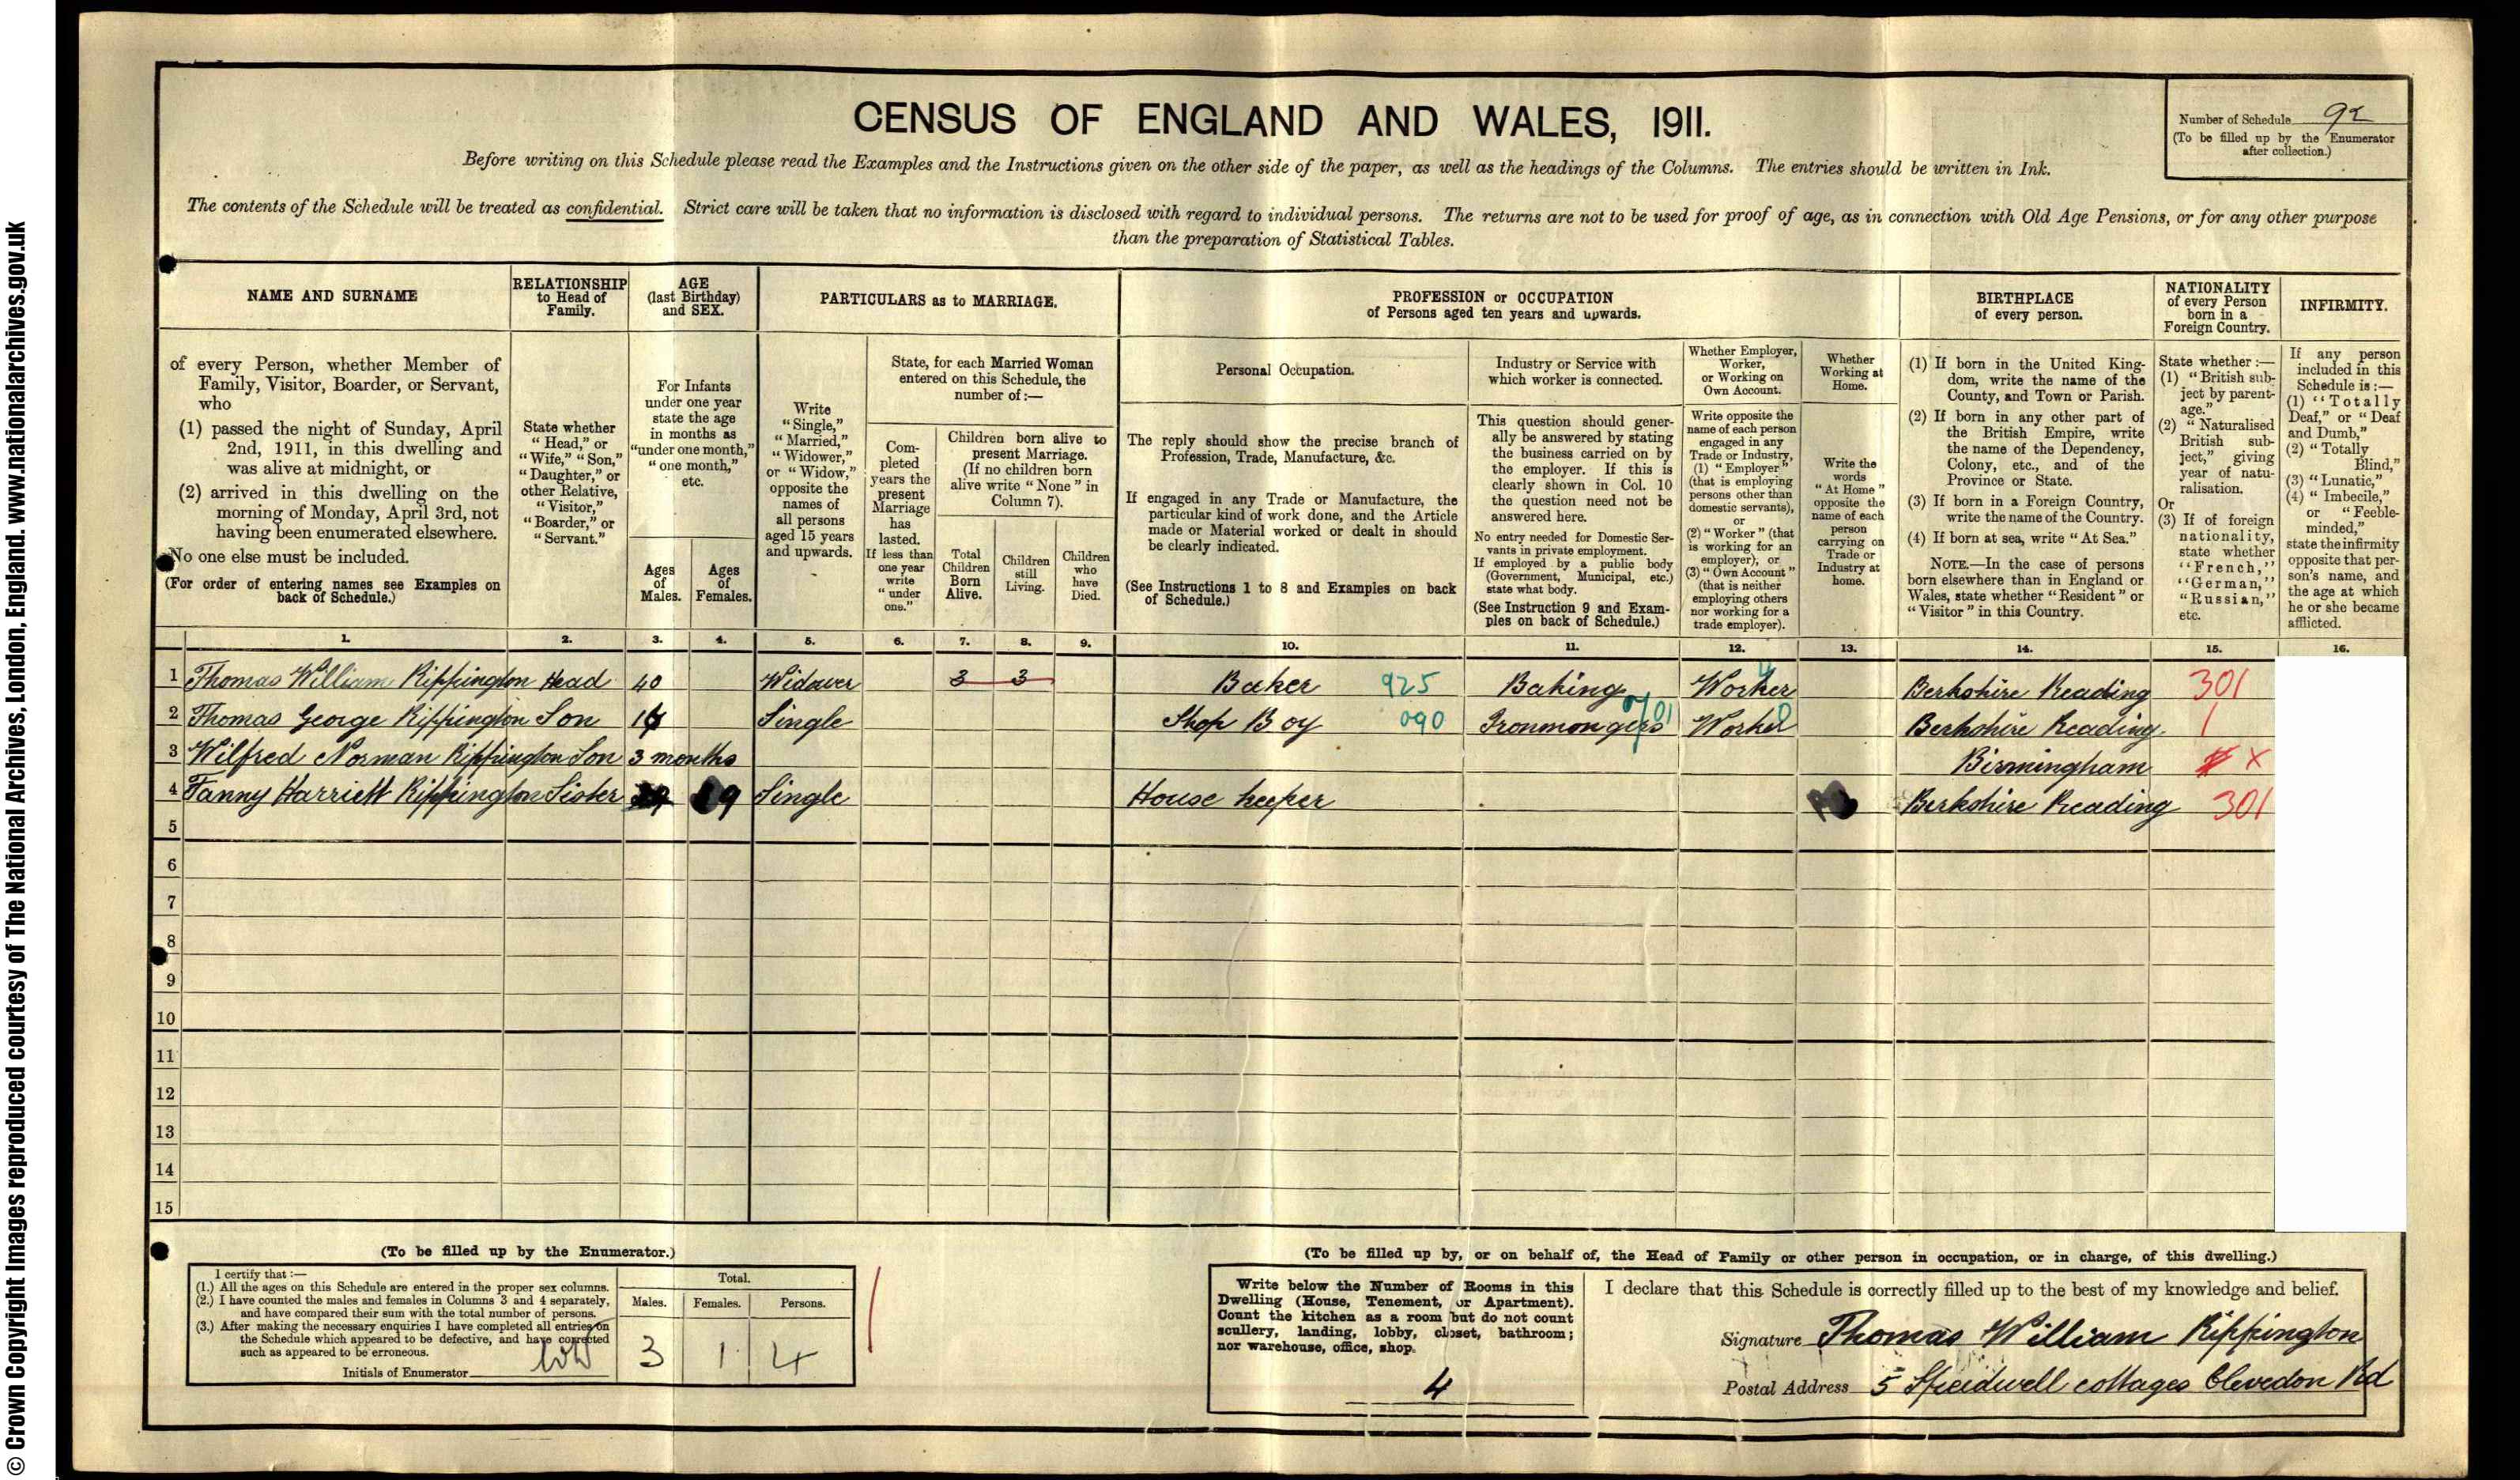 © Crown Copyright Images reproduced courtesy of The National Archives, London, England. www.nationalarchives.gov.uk
CENSUS OF ENGLAND AND WALES, 1911.
Number of Schedule 92
(To be filled up by the Enumerator
after collection.)
Before writing on this Schedule please read the Examples and the Instructions given on the other side of the paper, as well as the headings of the Columns. The entries should be written in Ink.
The contents of the Schedule will be treated as confidential. Strict care will be taken that no information is disclosed with regard to individual persons. The returns are not to be used for proof of age, as in connection with Old Age Pensions, or for any other purpose
than the preparation of Statistical Tables.
NAME AND SURNAME
of every Person, whether Member of
Family, Visitor, Boarder, or Servant,
who
(1) passed the night of Sunday, April
2nd, 1911, in this dwelling and
was alive at midnight, or
(2) arrived in this dwelling on the
morning of Monday, April 3rd, not
having been enumerated elsewhere.
No one else must be included.
(For order of entering names see Examples on
back of Schedule.)
RELATIONSHIP
to Head of
Family.
State whether
"Head," or
"Wife," "Son,"
"Daughter," or
other Relative,
"Visitor,"
"Boarder," or
"Servant."
AGE
(last Birthday)
and SEX.
For Infants
under one year
state the age
in months as
"under one month,"
"one month,"
etc.
Ages
of
Males.
Ages
of
Females.
PARTICULARS as to MARRIAGE.
Write
"Single,"
"Married,"
"Widower,"
or "Widow,"
opposite the
names of
all persons
aged 15 years
and upwards.
State, for each Married Woman
entered on this Schedule, the
number of:—
Com-
pleted
years the
present
Marriage
has
lasted.
If less than
one year
write
"under
one."
Children born alive to
present Marriage.
(If no children born
alive write "None" in
Column 7).
Total
Children
Born
Alive.
Children
still
Living.
Children
who
have
Died.
PROFESSION or OCCUPATION
of Persons aged ten years and upwards.
Personal Occupation.
The reply should show the precise branch of
Profession, Trade, Manufacture, &c.
If engaged in any Trade or Manufacture, the
particular kind of work done, and the Article
made or Material worked or dealt in should
be clearly indicated.
(See Instructions 1 to 8 and Examples on back
of Schedule.)
Industry or Service with
which worker is connected.
This question should gener-
ally be answered by stating
the business carried on by
the employer. If this is
clearly shown in Col. 10
the question need not be
answered here.
No entry needed for Domestic Ser-
vants in private employment.
If employed by a public body
(Government, Municipal, etc.)
state what body.
(See Instruction 9 and Exam-
ples on back of Schedule.)
Whether Employer,
Worker,
or Working on
Own Account.
Write opposite the
name of each person
engaged in any
Trade or Industry,
(1) "Employer"
(that is employing
persons other than
domestic servants),
or
(2) "Worker" (that
is working for an
employer), or
(3) "Own Account"
(that is neither
employing others
nor working for a
trade employer).
Whether
Working at
Home.
Write the
words
"At Home"
opposite the
name of each
person
carrying on
Trade or
Industry at
home.
BIRTHPLACE
of every person.
(1) If born in the United King-
dom, write the name of the
County, and Town or Parish.
(2) If born in any other part of
the British Empire, write
the name of the Dependency,
Colony, etc., and of the
Province or State.
(3) If born in a Foreign Country,
write the name of the Country.
(4) If born at sea, write "At Sea."
NOTE.—In the case of persons
born elsewhere than in England or
Wales, state whether "Resident" or
"Visitor" in this Country.
NATIONALITY
of every Person
born in a
Foreign Country.
State whether:—
(1) "British sub-
ject by parent-
age."
(2) "Naturalised
British sub-
ject," giving
year of natu-
ralisation.
Or
(3) If of foreign
nationality,
state whether
"French,"
"German,"
"Russian,"
etc.
INFIRMITY.
If any person
included in this
Schedule is:—
(1) "Totally
Deaf," or "Deaf
and Dumb,"
(2) "Totally
Blind,"
(3) "Lunatic,"
(4) "Imbecile,"
or "Feeble-
minded,"
state the infirmity
opposite that per-
son's name, and
the age at which
he or she became
afflicted.
1. 2. 3. 4. 5. 6. 7. 8. 9. 10. 11. 12. 13. 14. 15. 16.
1 Thomas William Rippington Head 40 Widower 3 3 Baker 925 Baking Worker Berkshire Reading 301
2 Thomas George Rippington Son Single Shop Boy 090 Ironmongers Worker Berkshire Reading 1
3 Wilfred Norman Rippington Son 3 months Birmingham X
4 Fanny Harriett Rippington Sister Single House keeper Berkshire Reading 301
5
6
7
8
9
10
11
12
13
14
15
(To be filled up by the Enumerator.)
I certify that:—
(1.) All the ages on this Schedule are entered in the proper sex columns.
(2.) I have counted the males and females in Columns 3 and 4 separately,
and have compared their sum with the total number of persons.
(3.) After making the necessary enquiries I have completed all entries on
the Schedule which appeared to be defective, and have corrected
such as appeared to be erroneous.
Initials of Enumerator
Total.
Males. Females. Persons.
3 1 4
(To be filled up by, or on behalf of, the Head of Family or other person in occupation, or in charge, of this dwelling.)
Write below the Number of Rooms in this
Dwelling (House, Tenement, or Apartment).
Count the kitchen as a room but do not count
scullery, landing, lobby, closet, bathroom;
nor warehouse, office, shop.
4
I declare that this Schedule is correctly filled up to the best of my knowledge and belief.
Signature Thomas William Rippington
Postal Address 5 Speedwell cottages Clevedon Rd